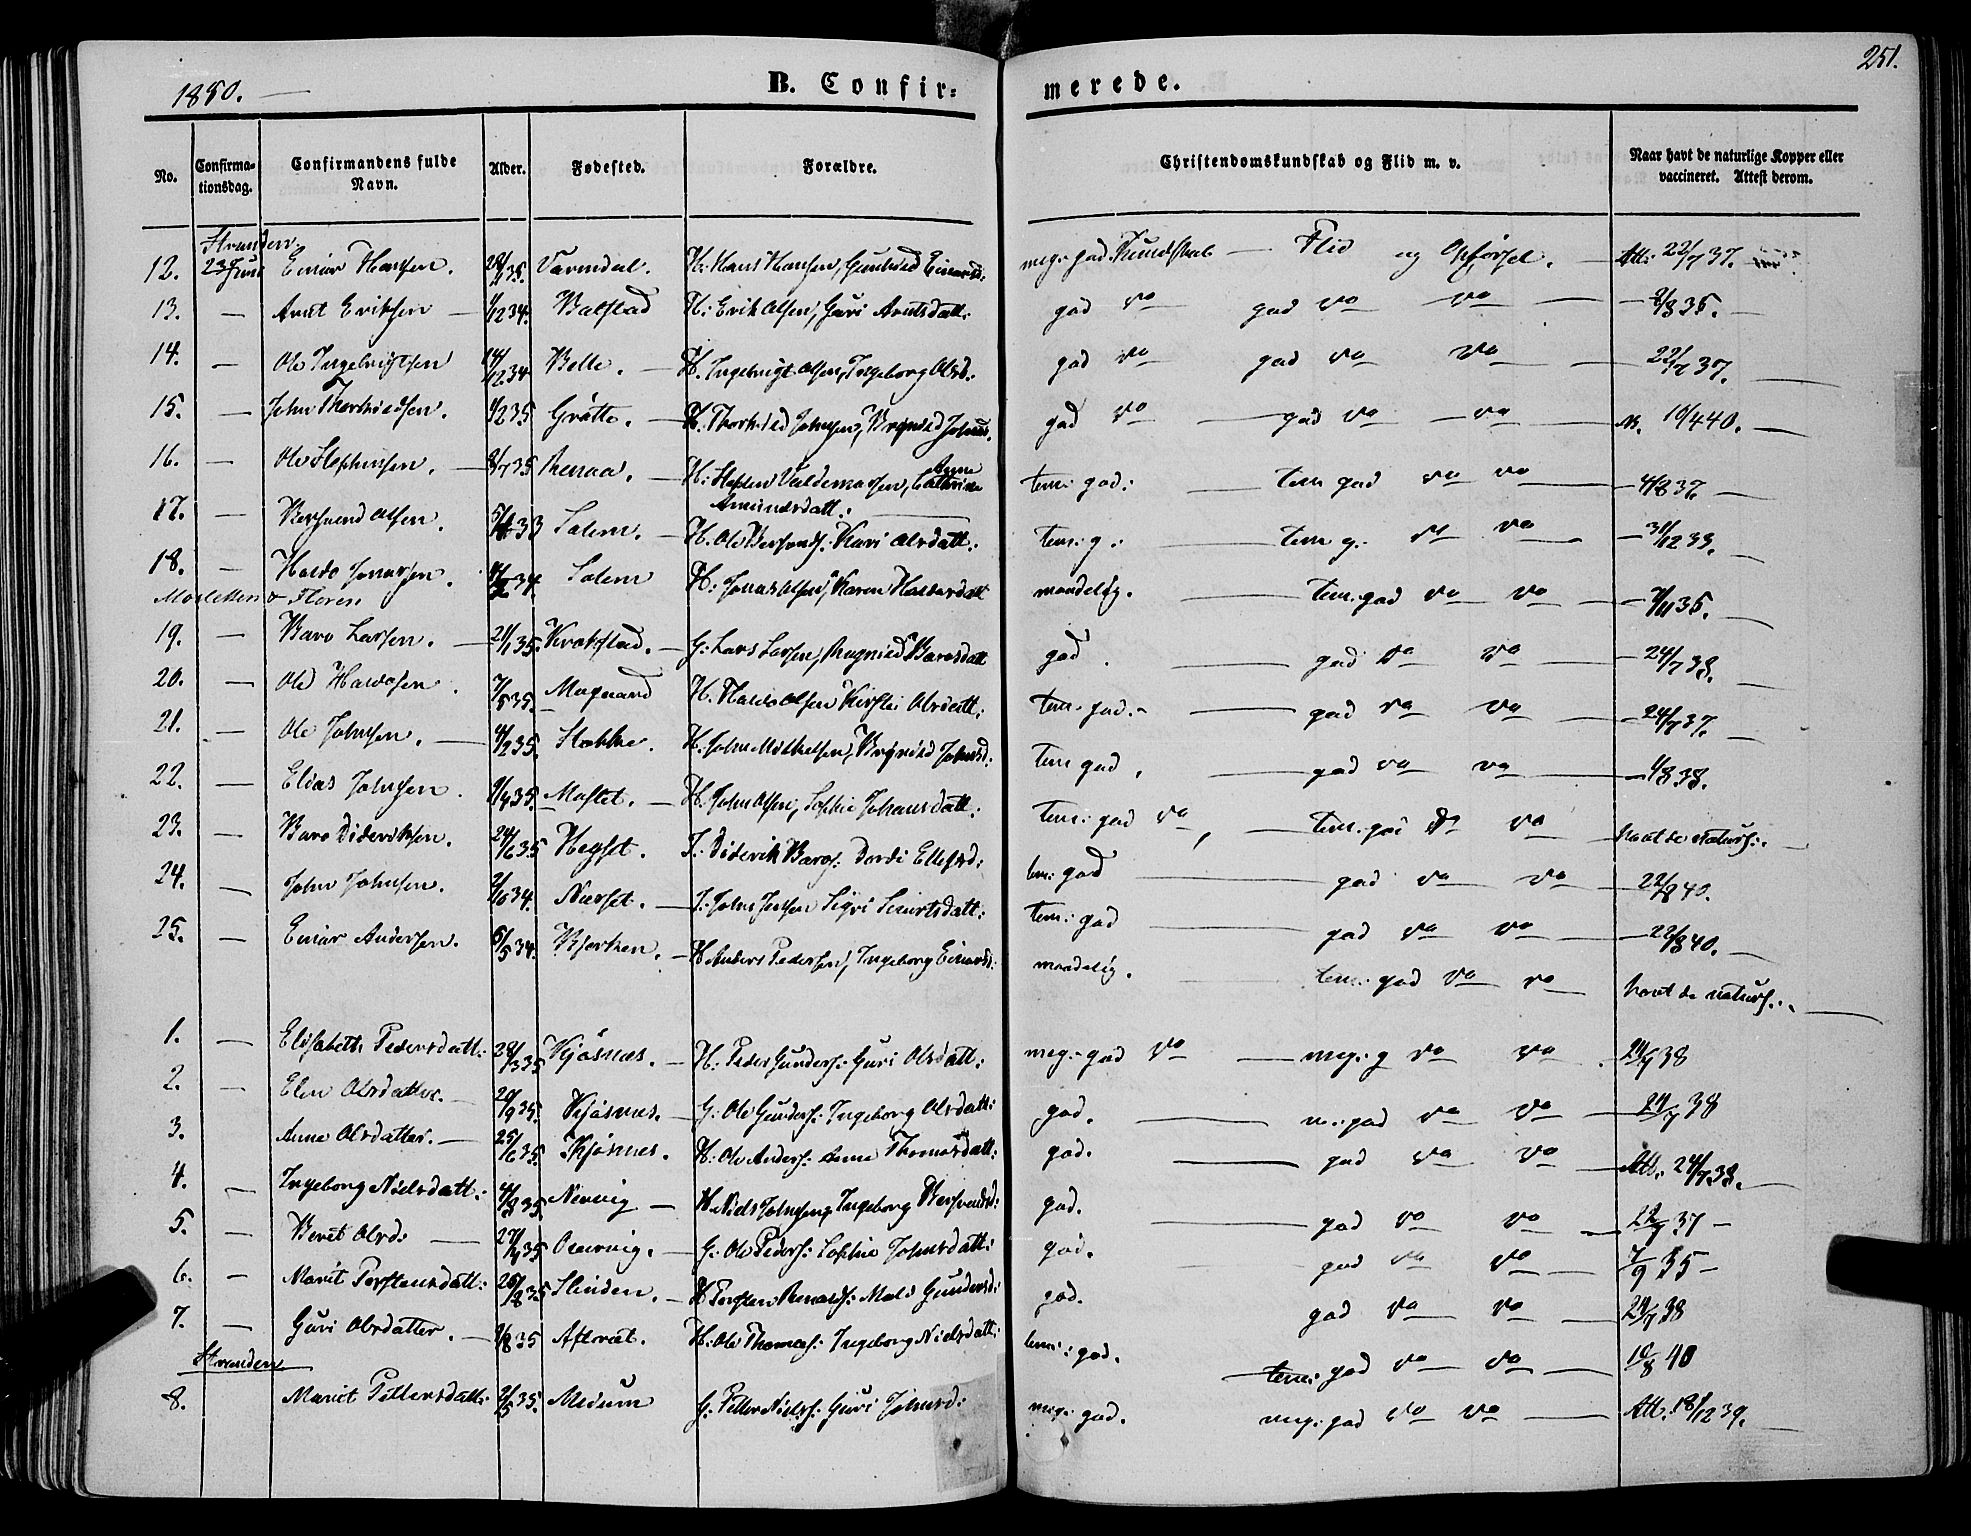 1850. B. Confir= merede. 251.
No. Confirma=tionsdag. Confirmandens fulde Navn. Alder. Fødested. Forældre. Christendomskundskab og Flid m. v. Naar havt de naturlige Kopper eller vaccineret. Attest derom.
Stranden.
12. 23 Juni Einar Hansen. 35. Varmdal. H: Hans Hansen, Gunhild Einarsd: meg. god Kundskab — Flid og Opførsel. — Att: 22/7 37.
13. — Arnt Eriksen — 1/12 34. Balstad H: Erik Olsen, Guri Arntsdatt: god do god do do — 2/8 35. —
14. — Ole Ingebrigtsen 14/12 34 Belle. — H. Ingebrigt Olsen, Ingeborg Olsd: god do god do do 22/7 37. —
15. — John Thorkildsen. 1/2 35 Grøtte. — H. Thorkild Johnsen, Brynild Johnsd. god do — god do — do — 10/4 40. —
16. — Ole Stephensen. — 8/7 35 Renaa. — H: Stephen Valdemarsen, Anne Cathrine
Amundsdatt: tem: god: — tem god do do — 4/8 37. —
17. — Bersvend Olsen. 33 Solem. — H. Ole Bersvends: Kari Olsdatt: tem: g: — tem g. do do — 31/12 33. —
18. — Haldo Jonassen. 34 Solem H: Jonas Olsen, Karen Haldosdatt maadelig. — tem: god do do — 7/11 35. —
Mosletten & Floren
19. — Baro Larsen. — 21/1 35. Krokstad. — G: Lars Larsen, Ragnild Barosdatt god. — god do do — 24/7 38. —
20. — Ole Haldosen. 7/5 35. Mogaard H. Haldo Olsen Kirsti Olsdatt: tem: god. — god do do — 24/7 37. —
21. — Ole Johnsen. — 4/2 35. Stokke. H. John Mikkelsen, Brynild Johnsd: tem god. — god do do — 4/8 38.
22. — Elias Johnsen. 9/4 35. Moslet. — H. John Olsen, Sophie Johansdatt: tem: god do, — tem: god do do havt de naturl:. —
23. — Baro Dideriksen. 24/6 35 Hegset. I: Diderik Baros: Dordi Ellefsd: tem: god — god do do — 22/8 40.
24. — John Johnsen. 34. Nerset. — I: John Jensen Sigri Siurtsdatt: tem: god — god do do — 22/8 40. —
25. — Einar Andersen. 6/5 34. Bjerken. — H Anders Pedersen, Ingeborg Einarsd: maadelig. — tem: god do do — havt de naturl:. —
1. — Elisabeth Pedersdatt: 28/3 35 Kjøsnes. — H: Peder Gunders: Guri Olsdatt: meg: god do — meg: g do do 24/7 38
2. — Elen Olsdatter. — 20/9 35. Kjøsnes. — G: Ole Gunders: Ingeborg Olsdatt: god. — m: god do do — 24/7 38
3. Anne Olsdatter. — 25/6 35. Kjøsnes. H: Ole Anders: Anne Thomasdatt: god. — god do do — Att: 24/7 38. —
4. — Ingeborg Nielsdatt: 4/8 35. Nervig — H Niels Johnsen, Ingeborg Bersvendsd: god. — god do do — 22/7 37 —
5. — Berit Olsd: — 35 Overvig. — G: Ole Peders: Sophie Johnsdatt: god. — god do do — 7/9 35 —
6. — Marit Torstensdatt: 26/8 35 Slinden. — H Torsten Arnolds: Mali Gundersd: god. god do do — 24/7 38
7. — Guri Olsdatter. — 9/8 35 Aftret. H: Ole Thomas: Ingeborg Nielsdatt: tem: god. tem: god do do — 10/8 40
Stranden
8. Marit Pettersdatt: 2/5 35. Medum G: Petter Niels: Guri Johnsd: meg: god. meg: god do do — Att. 18/12 39. —